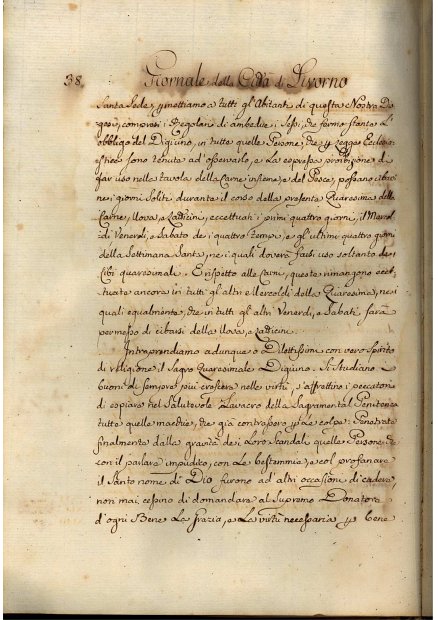 38. Giornale della Città di Livorno
Santa Sede, permettiamo a tutti gl'Abitanti di questa Nostra
compresi i Regolari di ambedue i Sessi, che fermo stante l'
obbligo del Digiuno, in tutte quelle Persone, che per legge
sono tenute ad osservarlo, e la espressa proibizione di
far uso nella tavola della Carne insieme, e del Pesce, possano
ne i giorni soliti durante il corso della presente Quaresima della
Carne, Uova, e Latticini, eccettuati i primi quattro giorni, il
di Venerdì, e Sabato de i quattro tempi, e gl'ultimi quattro giorni
della Settimana Santa, ne i quali doverà farsi uso soltanto de
Cibi quaresimali. E rispetto alle Carni, queste rimangono
ancora in tutti gl'altri Mercoldì della Quaresima, ne i
quali equalmente, che in tutti gl'altri Venerdì, e Sabati, sarà
permesso di cibarsi della Uova, e Latticini.
Intraprendiamo adunque o Dilettissimi con vero Spirito
di religione il Sagro Quaresimale Digiuno. Si Studiano i
buoni di sempre più crescere nelle virtù, s'affrettino i peccatori
di espiare nel Salutevole Lavacro della Sagramental Penitenza
tutte quelle macchie, che già contrassero per le colpe. Penetrate
finalmente dalla gravità de i Loro Scandali quelle Persone, che
con il parlare impudico, con le bestemmie, e col profanare
il Santo nome di Dio furono ad altri occasione di cadere,
non mai cessino di domandare al Supremo Donatore
d'ogni Bene la Grazia, e la virtù necessaria per bene